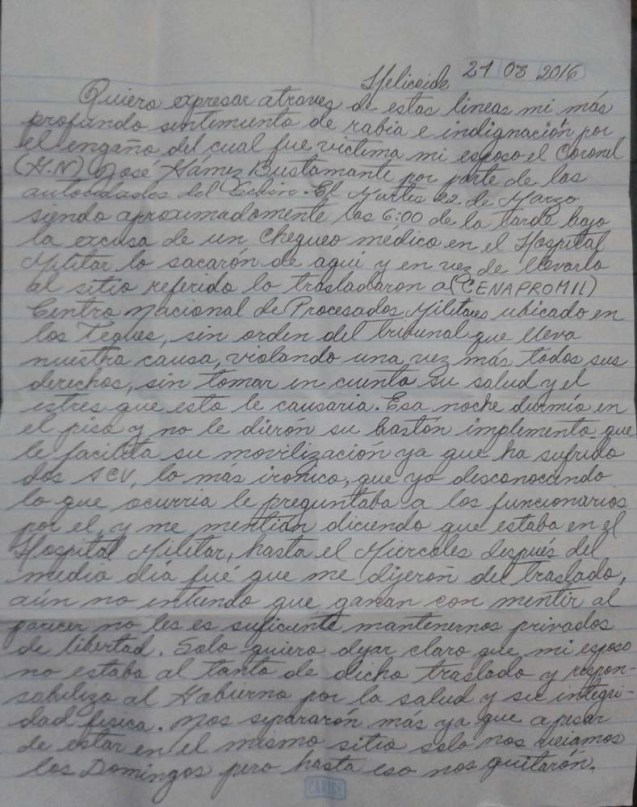 Helicoide 21 03 2016
Quiero expresar atraves de estas lineas mi más
profundo sentimiento de rabia e indignación por
el engaño del cual fue victima mi esposo el Coronel
(H.N) José Námez Bustamante por parte de las
autoridades del Sebin. El Martes 22 de Marzo
siendo aproximadamente las 6:00 de la tarde bajo
la excusa de un chequeo médico en el Hospital
Militar lo sacarón de aqui y en vez de llevarlo
al sitio referido lo trasladaron a (CENAPROMIL)
Centro Nacional de Procesados Militares ubicado en
los Teques, sin orden del tribunal que lleva
nuestra causa, violando una vez más todos sus
derechos, sin tomar en cuenta su salud y el
estres que esto le causaria. Esa noche durmío en
el piso y no le dieron su bastón implemento que
le facilita su movilización ya que ha sufrido
dos ACV, lo más ironico, que yo desconocando
lo que ocurria le preguntaba a los funcionarios
por el, y me mentian diciendo que estaba en el
Hospital Militar, hasta el Miercoles después del
media día fué que me dijeron del traslado,
aún no entiendo que ganan con mentir al
parecer no les es suficiente mantenernos privados
de libertad. Solo quiero dejar claro que, mi esposo
no estaba al tanto de dicho traslado y respon-
sabilizo al Gobierno por la salud y su integri-
dad fisica. Nos separarón más ya que a pesar
de estar en el mismo sitio solo nos veiamos
los Domingos pero hasta eso nos quitaron.